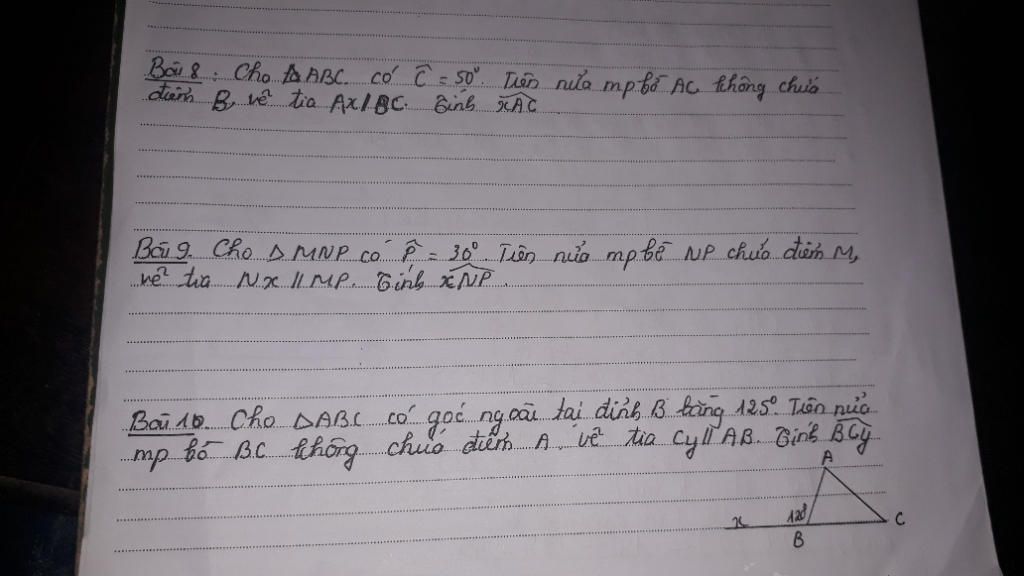 Bài 8: Cho ΔABC có Ĉ = 50°. Trên nửa mp bờ AC không chứa
điểm B, vẽ tia Ax//BC. Tính xAC
Bài 9. Cho Δ MNP có P̂ = 30°. Trên nửa mp bờ NP chứa điểm M,
vẽ tia Nx // MP. Tính xNP.
Bài 10. Cho ΔABC có góc ngoài tại đỉnh B bằng 125°. Trên nửa
mp bờ BC không chứa điểm A, vẽ tia Cy // AB. Tính BCy
A
x
B
C